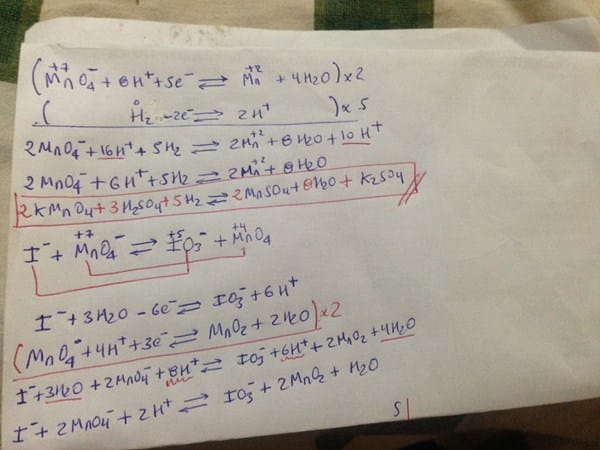 (MnO₄⁻ + 8H⁺ + 5e⁻ ⇌ Mn⁺² + 4H₂O) x2
( H₂ - 2e⁻ ⇌ 2H⁺ ) x 5
2MnO₄⁻ + 16H⁺ + 5H₂ ⇌ 2Mn⁺² + 8H₂O + 10H⁺
2MnO₄⁻ + 6H⁺ + 5H₂ ⇌ 2Mn⁺² + 8H₂O
2KMnO₄ + 3H₂SO₄ + 5H₂ ⇌ 2MnSO₄ + 8H₂O + K₂SO₄
I⁻ + MnO₄⁻ ⇌ IO₃⁻ + MnO₄
I⁻ + 3H₂O - 6e⁻ ⇌ IO₃⁻ + 6H⁺
(MnO₄⁻ + 4H⁺ + 3e⁻ ⇌ MnO₂ + 2H₂O) x2
I⁻ + 3H₂O + 2MnO₄⁻ + 8H⁺ ⇌ IO₃⁻ + 6H⁺ + 2MnO₂ + 4H₂O
I⁻ + 2MnO₄⁻ + 2H⁺ ⇌ IO₃⁻ + 2MnO₂ + H₂O